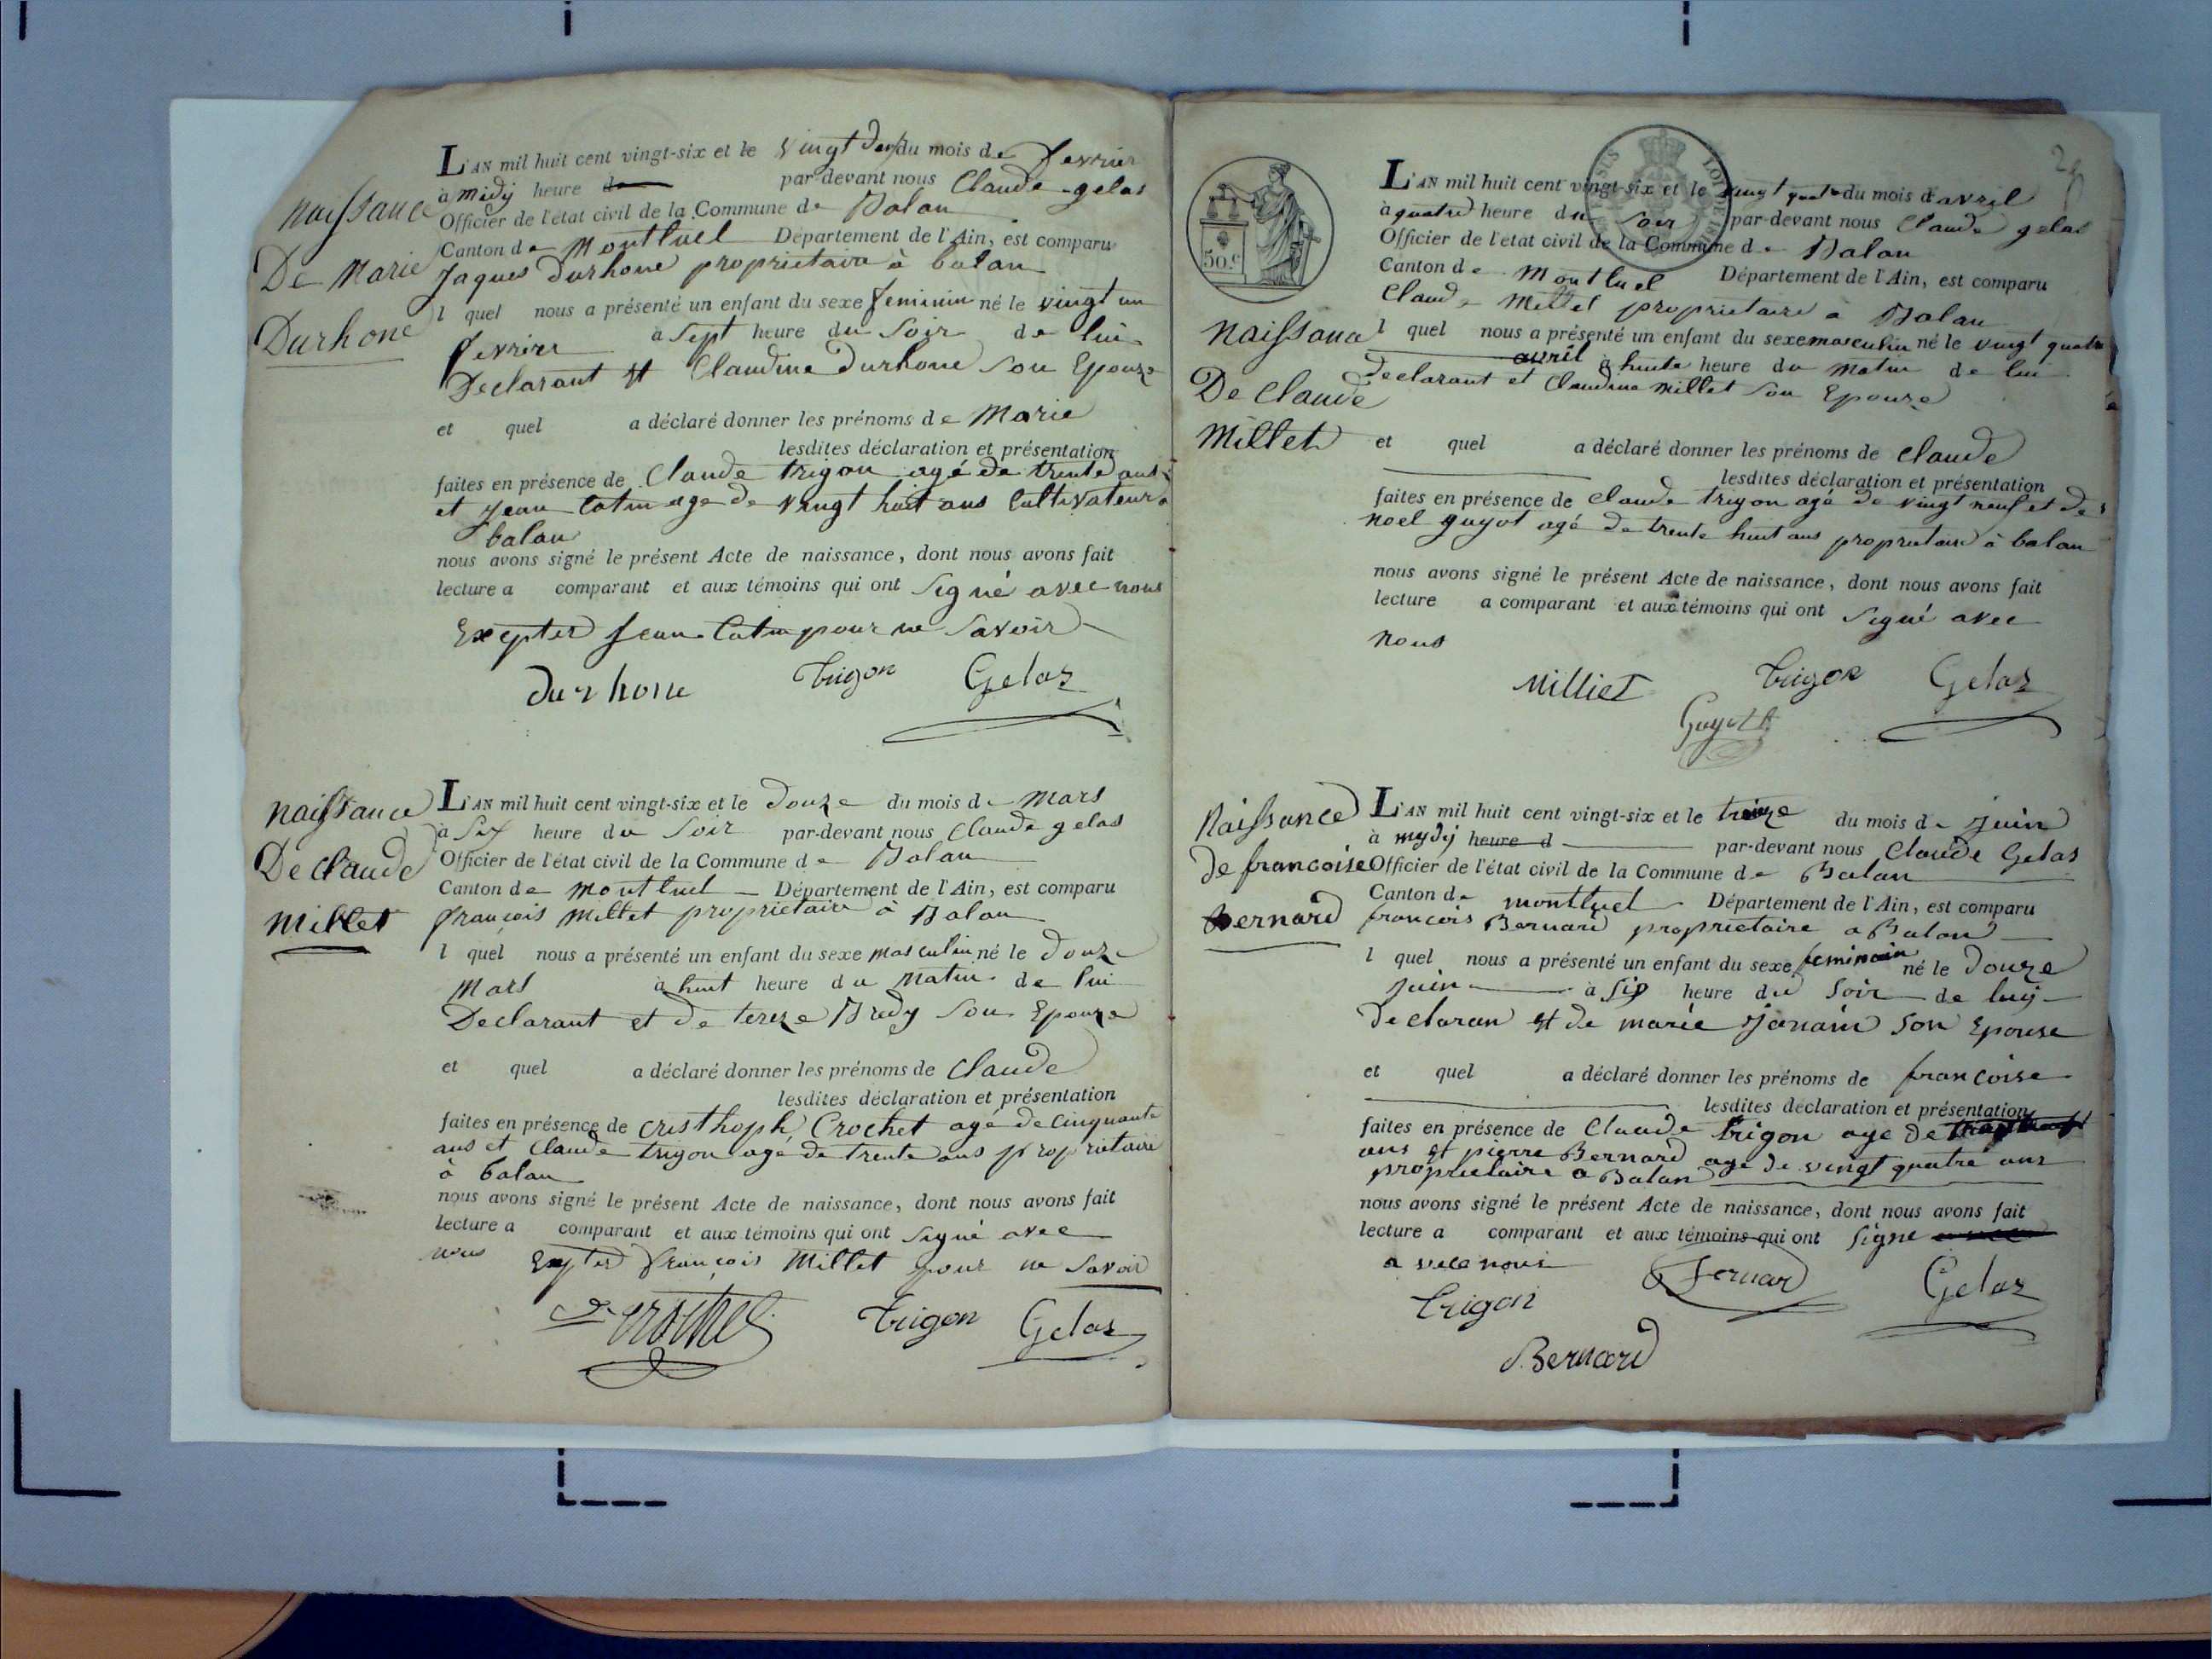 naissance
De Marie
Durhone
L'AN mil huit cent vingt-six et le vingt deux du mois de fevrier
à midy heure d par-devant nous Claude gelas
Officier de l'état civil de la Commune de Balan
Canton de Montluel Département de l'Ain, est comparu
Jaques Durhone proprietaire à balan
l quel nous a présenté un enfant du sexe feminin né le vingt un
fevrier à sept heure du soir de lui
Declarant et Claudine Durhone son Epouze
et quel a déclaré donner les prénoms de Marie
lesdites déclaration et présentation
faites en présence de Claude trigon agé de trente ans
et Jean Catin age de vingt huit ans Cultivateur a
balan
nous avons signé le présent Acte de naissance, dont nous avons fait
lecture a comparant et aux témoins qui ont signé avec nous
Exepter Jean Catin pour ne savoir
durhone Trigon Gelas
naissance
De Claude
Millet
L'AN mil huit cent vingt-six et le Douze du mois de Mars
à six heure du soir par-devant nous Claude gelas
Officier de l'état civil de la Commune de Balan
Canton de Montluel Département de l'Ain, est comparu
françois Millet proprietaire à Balan
l quel nous a présenté un enfant du sexe masculin né le Douze
Mars à huit heure du Matin de lui
Declarant et de tereze Bredy son Epouze
et quel a déclaré donner les prénoms de Claude
lesdites déclaration et présentation
faites en présence de Cristhoph Crochet agé de Cinquante
ans et Claude trigon agé de trente ans proprietaire
à balan
nous avons signé le présent Acte de naissance, dont nous avons fait
lecture a comparant et aux témoins qui ont signé avec
nous Expter françois Millet pour ne savoir
Crochet Trigon Gelas
50.c
naissance
De Claude
Millet
L'AN mil huit cent vingt-six et le vingt quatre du mois d'avril
à quatre heure du soir par-devant nous Claude gelas
Officier de l'état civil de la Commune de Balan
Canton de Montluel Département de l'Ain, est comparu
Claude Millet proprietaire à Balan
l quel nous a présenté un enfant du sexe masculin né le vingt quatre
avril à huite heure du matin de lui
declarant et Claudine Millet son Epouze
et quel a déclaré donner les prénoms de Claude
lesdites déclaration et présentation
faites en présence de Claude trigon agé de vingt neuf et de
noel guyot agé de trente huit ans proprietaire à balan
nous avons signé le présent Acte de naissance, dont nous avons fait
lecture a comparant et aux témoins qui ont signé avec
nous
Milliet Trigon Gelas
Guyot
Naissance
de francoise
Bernard
L'AN mil huit cent vingt-six et le treize du mois de juin
à mydy heure d par-devant nous Claude Gelas
Officier de l'état civil de la Commune de Balan
Canton de montluel Département de l'Ain, est comparu
francois Bernard proprietaire a Balan
l quel nous a présenté un enfant du sexe feminain né le Douze
juin à six heure du soir de luy
declaran et de marie Janain son Epouse
et quel a déclaré donner les prénoms de francoise
lesdites déclaration et présentation
faites en présence de Claude trigon age de
ans et pierre Bernard age de vingt quatre ans
proprietaire a Balan
nous avons signé le présent Acte de naissance, dont nous avons fait
lecture a comparant et aux témoins qui ont signe
avece nous
Trigon Bernar Gelas
Bernard